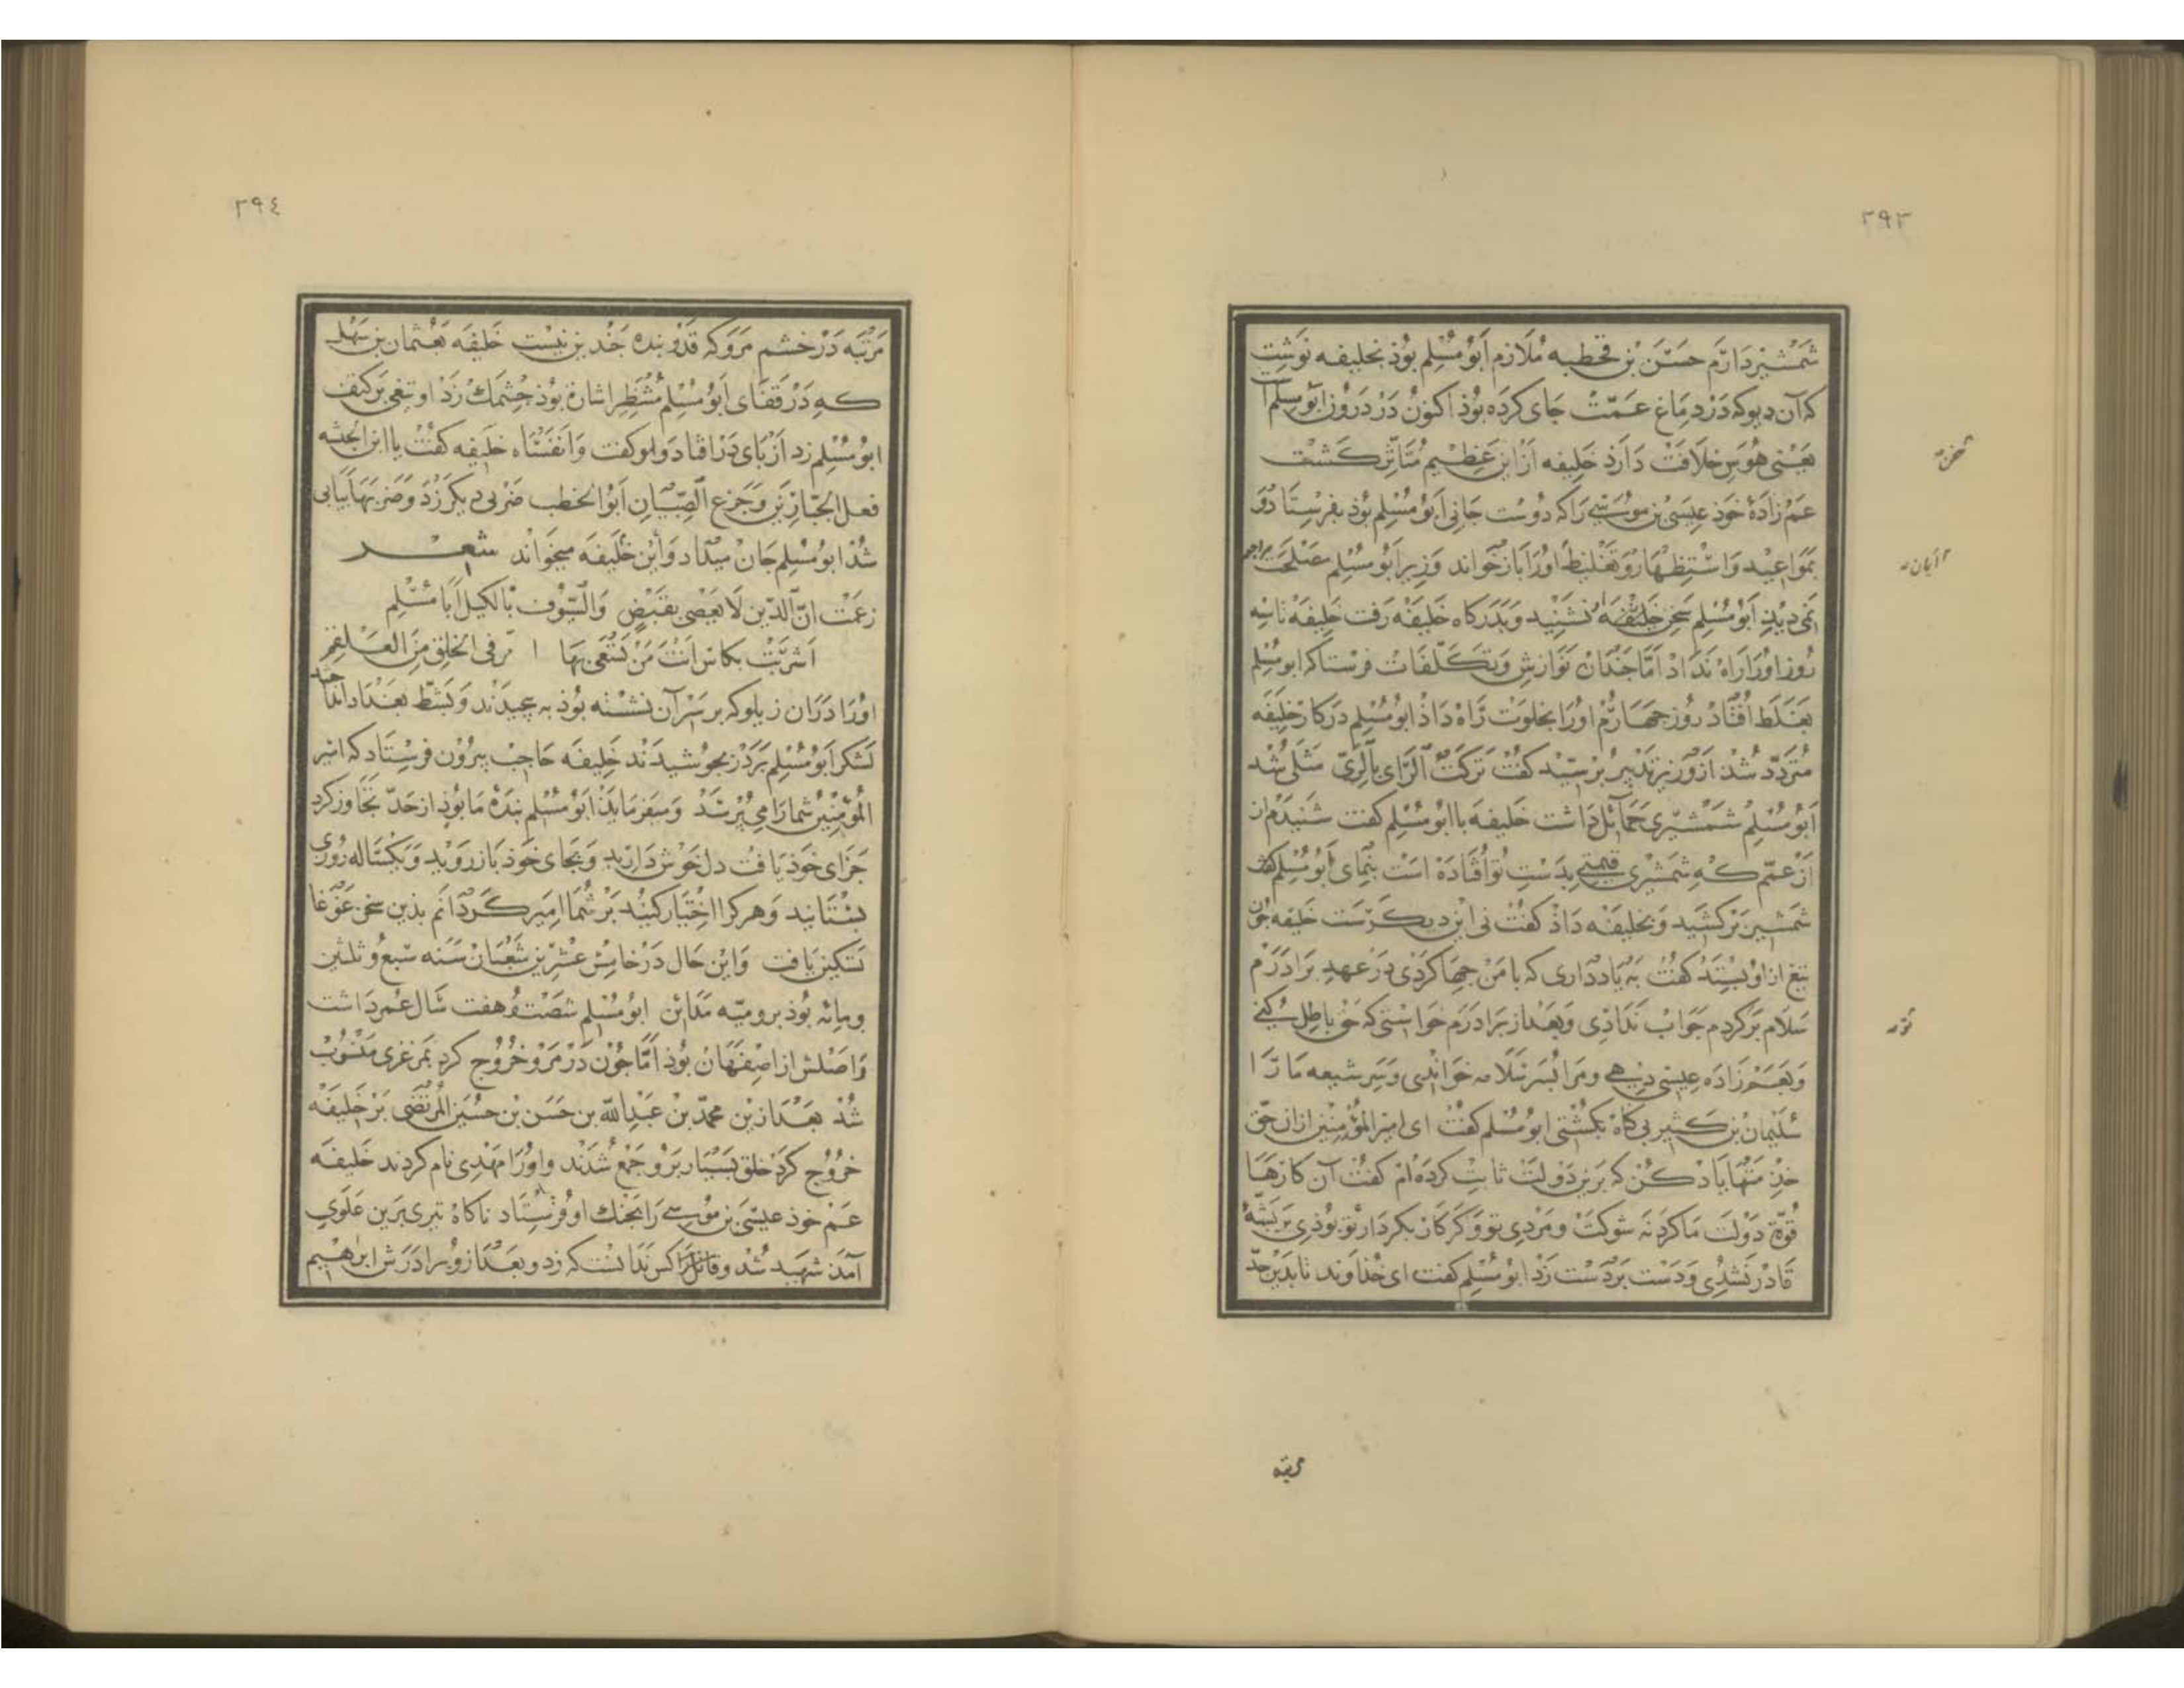 ٢٩٣
شمشیر دارم حسن بن قحطبه ملازم ابو مسلم بوذ بخلیفه نوشت
که آن دیو که در دماغ عمت جای کرده بوذ اکنون در دروز ابو مسلم است
یعنی هوس خلافت دارد خلیفه از این عظیم متاثر کشت
عم زادهٔ خوذ عیسی بن موسی را که دوست جانی ابو مسلم بوذ بفرستاد و
بمواعید واستظهار و تغلیظ اورا باز خواند وزیر ابو مسلم مصلحت مراجعت
نمی دید ابو مسلم سخن خلیفه نشنید وبدرکاه خلیفه رفت خلیفه تا سه
روز اورا راه نداد اما جندان نوازش وتکلفات فرستاد که ابو مسلم
بغلط افتاد روز جهارم اورا بخلوت راه داذ ابو مسلم در کار خلیفه
متردد شد از وزیر تدبیر برسید کفت ترکت الرای بالری مثلی شد
ابو مسلم شمشیری حمائل داشت خلیفه با ابو مسلم کفت شنیدم از
از عمم که شمشیری قیمتی بدست تو افتاده است بنمای ابو مسلم کفت
شمشیر برکشید وبخلیفه داذ کفت نی این دیکرست خلیفه جون
تیغ از او بستد کفت به یاد داری که با من جها کردی در عهد برادرم
سلام بر کردم جواب ندادی وبعد از برادرم خواستی که حق باطل کنی
وبعم زاده عیسی دهی ومرا بسر سلامه خواندی وسر شیعه ما را
سلیمان بن کثیر بی کناه بکشتی ابو مسلم کفت ای امیر المؤمنین ازان حق
خدمتها یاد کن که برین دولت ثابت کرده ام کفت آن کارها
قوة دولت ما کرد نه شوکت ومردی تو وکر کار بکردار تو بوذی بر بشهٔ
قادر نشدی ودست بر دست زد ابو مسلم کفت ای خداوند تا بدین حد
٢٩٤
مرتبه در خشم مرو که قدر بنده جندین نیست خلیفه بعثمان بن نهیك
که در قفای ابو مسلم منتظر اشارة بوذ جشمك زد او تیغی بر کتف
ابو مسلم زد از بای در افتاد واو کفت وانفساه خلیفه کفت یا ابن الخبیثه
فعل الجبارین وجزع الصبیان ابو الخطب ضربی دیکر زد وضربها بیابی
شد ابو مسلم جان میداد واین خلیفه میخواند شعر
زعمت ان الدین لا یقضی بقبض والسوف بالکیل ابا مسلم
اشربت بکاس انت من تسقی بها امر فی الخلق من العلقم
اورا دران زیلو که بر سر آن نشسته بوذ به بیجیدند وبشط بغداد انداختند
لشکر ابو مسلم بر در بجوشیدند خلیفه حاجب بیرون فرستاد که امیر
المؤمنین شمارا می برسد ومیفرماید ابو مسلم بنده ما بوذ از حد تجاوز کرد
جزای خوذ یافت دل خوش دارید وبجای خوذ باز روید ویکساله روزی
بستانید وهر کرا اختیار کنید بر شما امیر کردانم بذین سخن غوغا
تسکین یافت واین حال در خامس عشرین شعبان سنه سبع وثلثین
ومائه بوذ برومیه مدائن ابو مسلم شصت و هفت سال عمر داشت
واصلش از اصفهان بوذ اما جون در مرو خروج کرد بمرغزی منسوب
شد بعد ازین محمد بن عبد الله بن حسن بن حسین المرتضی بر خلیفه
خروج کرد خلق بسیار برو جمع شدند واورا مهدی نام کردند خلیفه
عم خوذ عیسی بن موسی را بجنك او فرستاد ناکاه تیری برین علوی
آمد شهید شد وقاتل را کس ندانست که زد وبعد از و برادرش ابرهیم